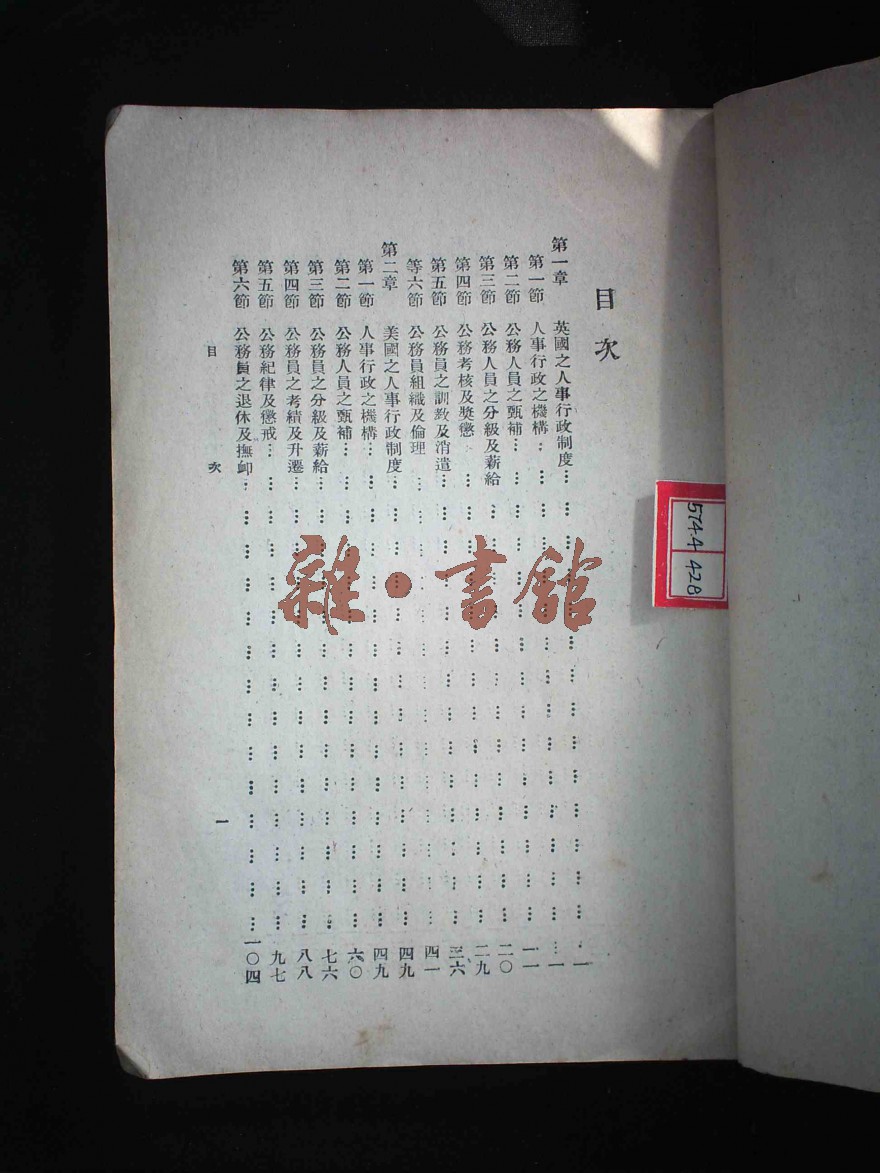 目次
第一章 英國之人事行政制度…………一
第一節 人事行政之機構…………一
第二節 公務人員之甄補…………一一
第三節 公務人員之分級及薪給…………二〇
第四節 公務考核及獎懲…………二九
第五節 公務員之訓教及消遣…………三六
等六節 公務員組織及倫理…………四一
第二章 美國之人事行政制度…………四九
第一節 人事行政之機構…………四九
第二節 公務人員之甄補…………六〇
第三節 公務員之分級及薪給…………七六
第四節 公務員之考績及升遷…………八八
第五節 公務紀律及懲戒…………九七
第六節 公務員之退休及撫卹…………一〇四
目次 一
574.4
428
雜·書館